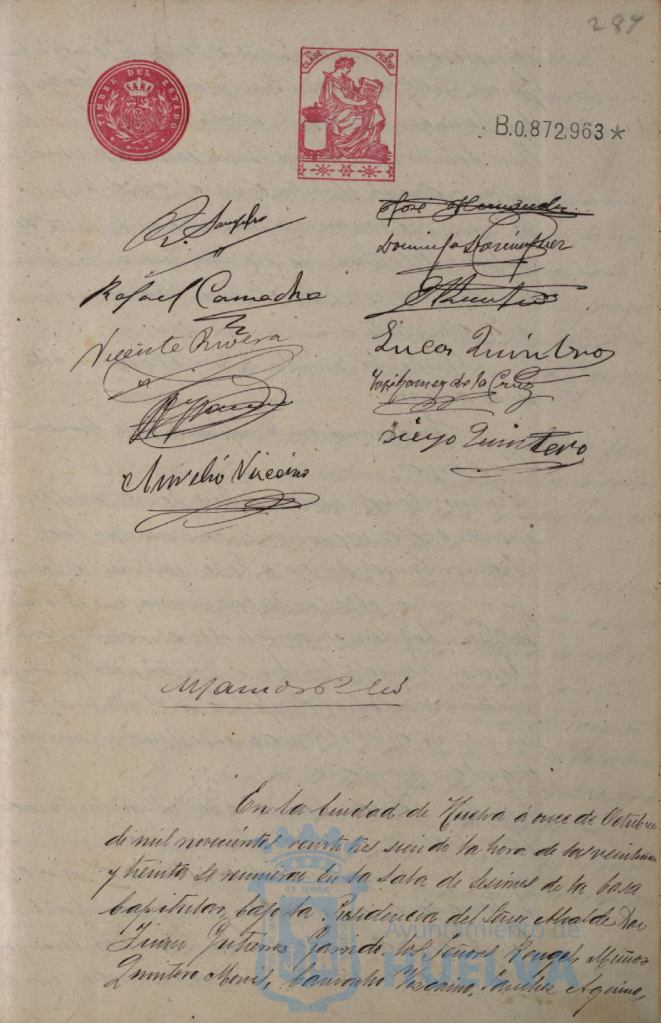 287
TIMBRE DEL ESTADO
7ª CLASE
PESETAS
B.0.872,963*
José Hernandez
Domingo Dominguez
Rafael Camacho
Vicente Rivera
Lucas Quintero
de la Cruz
Diego Quintero
Aurelio Vizcaino
En la Ciudad de Huelva á once de Octubre
de mil novecientos veinte tres siendo la hora de las veintiuna
y treinta se reunieron en la Sala de Sesiones de la Casa
Capitular, bajo la Presidencia del Señor Alcalde Don
Juan Gutierrez Garrido los Señores Rengel, Muñoz
Quintero Moril, Camacho, Vizcaino, Sanchez Aquino,
Ayuntamiento de
HUELVA